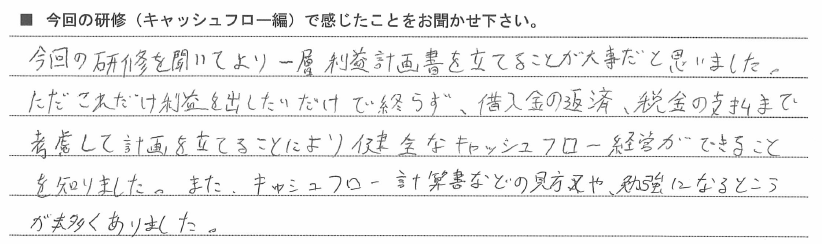 ■ 今回の研修（キャッシュフロー編）で感じたことをお聞かせ下さい。
今回の研修を聞いてより一層利益計画書を立てることが大事だと思いました。
ただこれだけ利益を出したいだけで終らず、借入金の返済、税金の支払まで
考慮して計画を立てることにより健全なキャッシュフロー経営ができること
を知りました。また、キャッシュフロー計算書などの見方や、勉強になるところ
が多くありました。